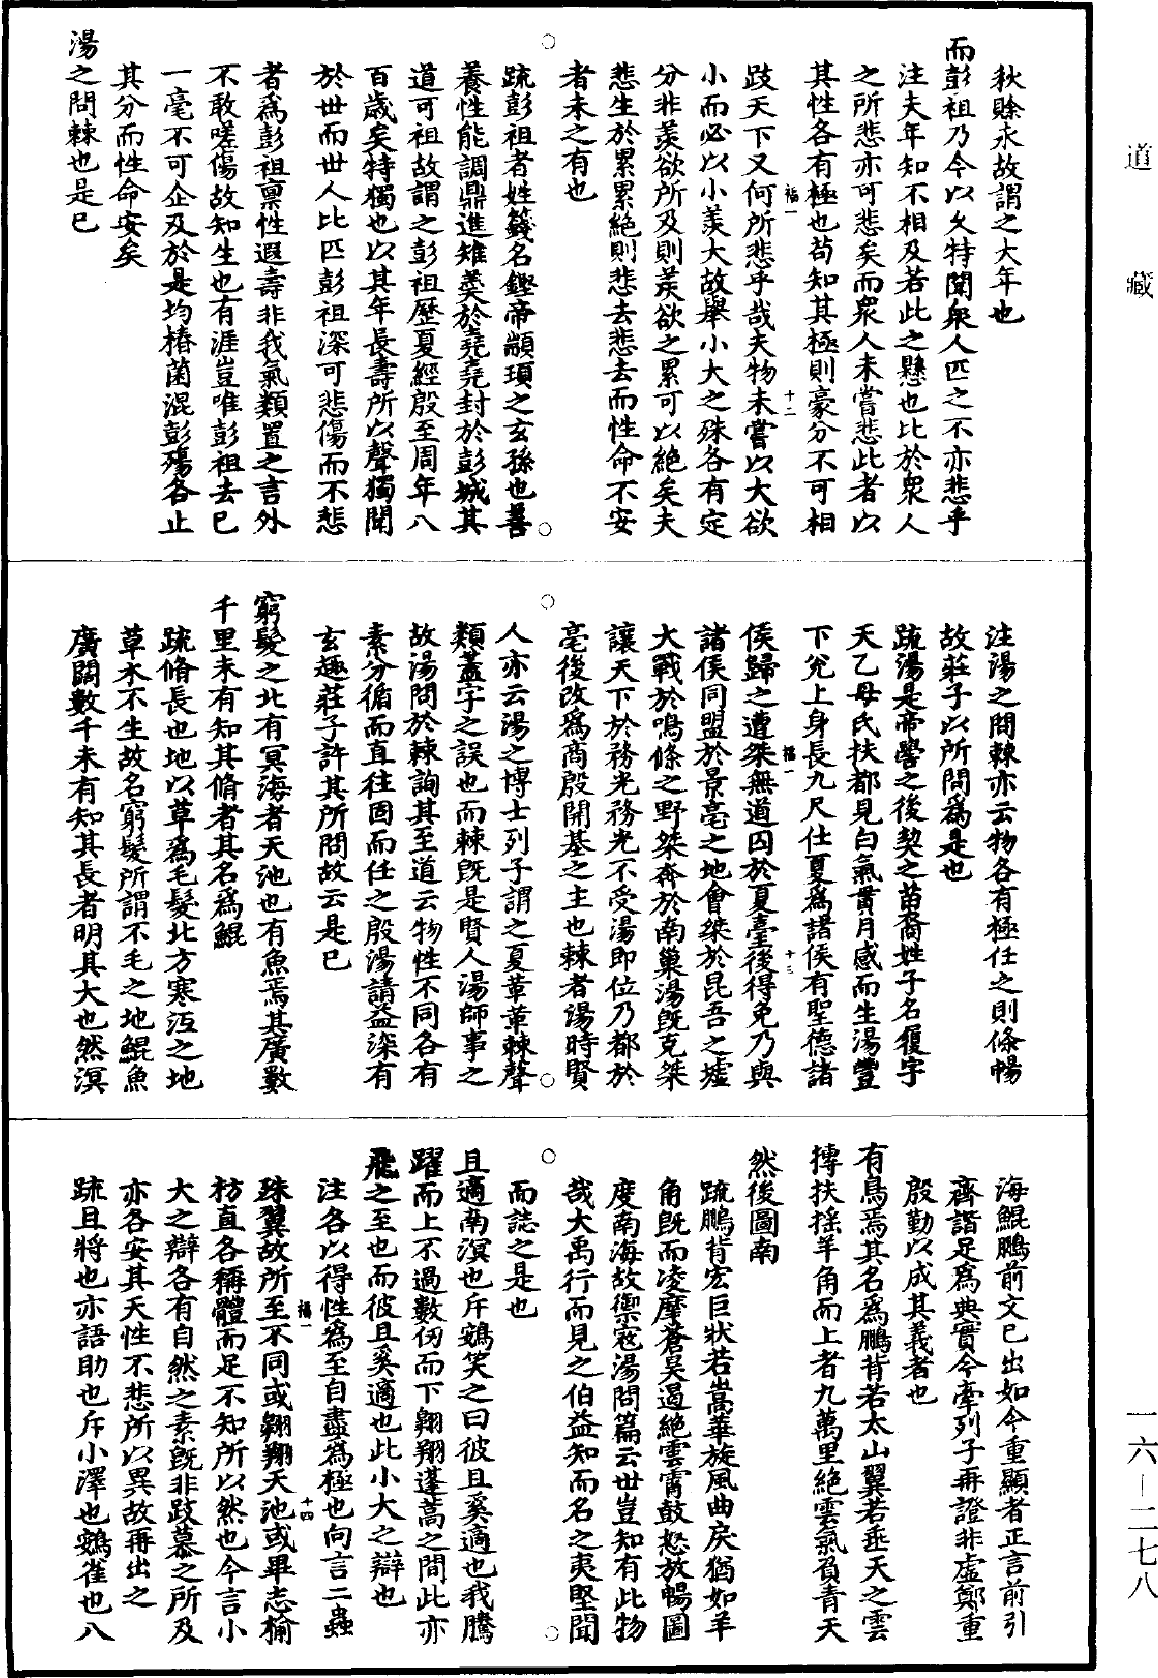 道藏
秋賒永故謂之大年也
而彭祖乃今以久特聞衆人匹之不亦悲乎
注夫年知不相及若此之懸也比於衆人
之所悲亦可悲矣而衆人未嘗悲此者以
其性各有極也苟知其極則豪分不可相
福一
十二
跂天下又何所悲乎哉夫物未嘗以大欲
小而必以小羨大故舉小大之殊各有定
分非羨欲所及則羨欲之累可以絕矣夫
悲生於累累絕則悲去悲去而性命不安
者未之有也
疏彭祖者姓籛名鏗帝顓頊之玄孫也善
養性能調鼎進雉羹於堯堯封於彭城其
道可祖故謂之彭祖歷夏經殷至周年八
百歲矣特獨也以其年長壽所以聲獨聞
於世而世人比匹彭祖深可悲傷而不悲
者為彭祖稟性遐壽非我氣類置之言外
不敢嗟傷故知生也有涯豈唯彭祖去已
一毫不可企及於是均椿菌混彭殤各止
其分而性命安矣
湯之問棘也是已
注湯之問棘亦云物各有極任之則條暢
故莊子以所問為是也
疏湯是帝嚳之後契之苗裔姓子名履字
天乙母氏扶都見白氣貫月感而生湯豐
下兌上身長九尺仕夏為諸侯有聖德諸
福一
十三
侯歸之遭桀無道囚於夏臺後得免乃與
諸侯同盟於景亳之地會桀於昆吾之墟
大戰於鳴條之野桀奔於南巢湯既克桀
讓天下於務光務光不受湯即位乃都於
亳後改為商殷開基之主也棘者湯時賢
人亦云湯之博士列子謂之夏革革棘聲
類蓋字之誤也而棘既是賢人湯師事之
故湯問於棘詢其至道云物性不同各有
素分循而直往因而任之殷湯請益深有
玄趣莊子許其所問故云是已
窮髮之北有冥海者天池也有魚焉其廣數
千里未有知其脩者其名為鯤
疏脩長也地以草為毛髮北方寒沍之地
草木不生故名窮髮所謂不毛之地鯤魚
廣闊數千未有知其長者明其大也然溟
海鯤鵬前文已出如今重顯者正言前引
齊諧足為典實今牽列子再證非虛鄭重
殷勤以成其義者也
有鳥焉其名為鵬背若太山翼若垂天之雲
摶扶搖羊角而上者九萬里絕雲氣負青天
然後圖南
疏鵬背宏巨狀若嵩華旋風曲戾猶如羊
角既而凌摩蒼昊遏絕雲霄鼓怒放暢圖
度南海故禦寇湯問篇云世豈知有此物
哉大禹行而見之伯益知而名之夷堅聞
而誌之是也
且適南溟也斥鴳笑之曰彼且奚適也我騰
躍而上不過數仞而下翱翔蓬蒿之間此亦
飛之至也而彼且奚適也此小大之辯也
注各以得性為至自盡為極也向言二蟲
福一
十四
殊翼故所至不同或翱翔天池或畢志榆
枋直各稱體而足不知所以然也今言小
大之辯各有自然之素既非跂慕之所及
亦各安其天性不悲所以異故再出之
疏且將也亦語助也斥小澤也鴳雀也八
一六—二七八